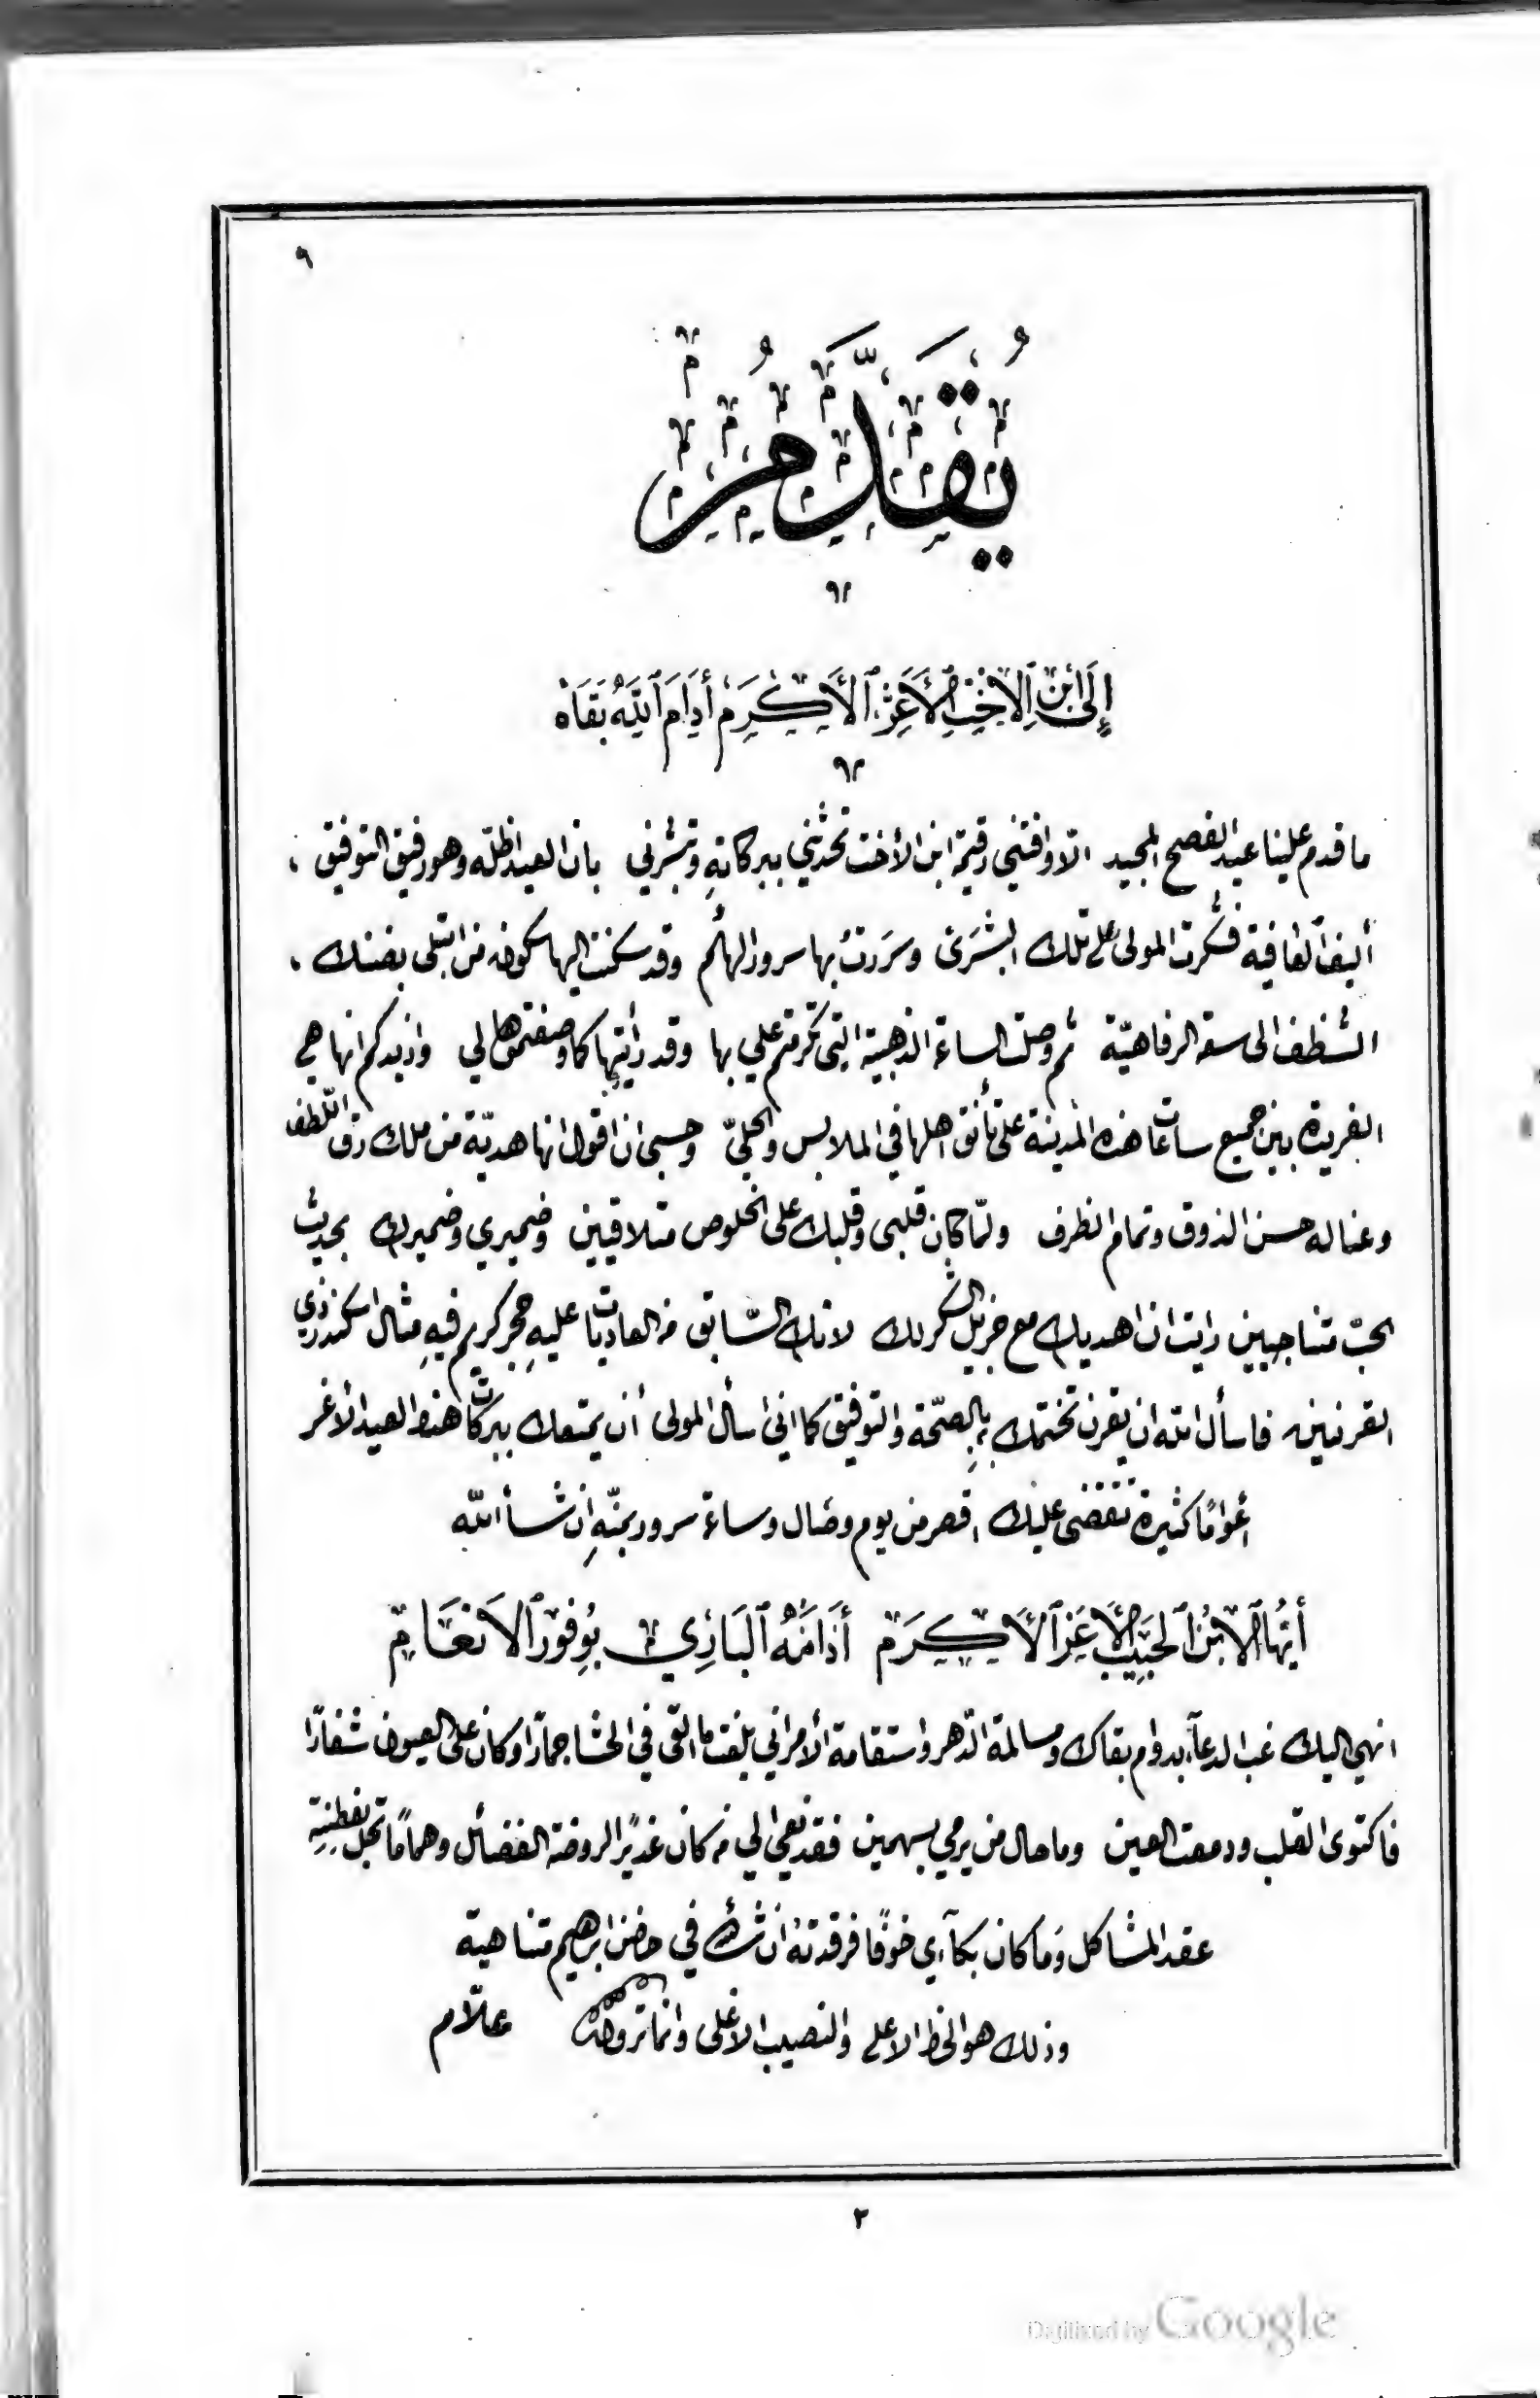 ٩
يُقَدَّمُ
إِلَى ابْنِ الأُخْتِ الأَعَزِّ الأَكْرَمِ أَدَامَ اللهُ بَقَاهُ
ما قدم علينا عيد الفصح المجيد الا وافتني رقيمة ابن الأخت تحدثني ببركاتهِ وتبشرني بان العيد اظلّه وهو رفيق التوفيق ،
أليف العافية فشكرت المولى على تلك البشرى وسررتُ بها سرور الهائم وقد سكنت اليها سكون من ابتلي بضنك ،
الشظف الى سعة الرفاهيّة ثم وصلت الساعة الذهبية التي تكرّمتم علي بها وقد رأيتها كما وصفتموها لي وازيدكم انها هي
الفريدة بين جميع ساعات هذه المدينة على تأنّق اهلها في الملابس والحليّ وحسبي ان اقول انها هديّة من ملك رق اللطف
وعنا له حسن الذوق وتمام الظرف ولمّا كان قلبي وقلبك على الخلوص متلاقيين وضميري وضميرك بحديث
الحبّ متناجيين رايت ان اهديك مع جزيل الشكر لك لانك السّابق من العاديات عليهِ حجر كريم فيهِ مثال اسكندر ذي
القرنين فاسأل الله ان يقرن تختمك بهِ بالصحّة والتوفيق كما اني اسأل المولى أن يمتعك ببركات هذا العيد الأغر
أعوامًا كثيرة تنقضي عليك اقصر من يوم وصال وساعة سرور بمنّهِ إن شأ الله
أَيُّهَا الاِبْنُ الحَبِيبُ الأَعَزُّ الأَكْرَم أَدَامَهُ البَارِي بِوُفُورِ الاِنْعَامِ
انهي اليك غب الدعآء بدوام بقاك ومسالمة الدهر واستقامة الأمر اني بلغت ما القى في الحشا جمارًا وكان على العيون شفارًا
فاكتوى القلب ودمعت العين وما حال من يرمي بسهمين فقد نعي الي من كان غديرًا لروضة الفضائل وهمامًا تحل بفطنتِهِ
عقد المشاكل وما كان بكآءي خوفًا فرقدتهُ ان شأ الله في حضن ابرهيم متناهية
وذلك هو الحظ الاعلى والنصيب الاغلى وانما تروعك علاّم
٢
Digitized by Google